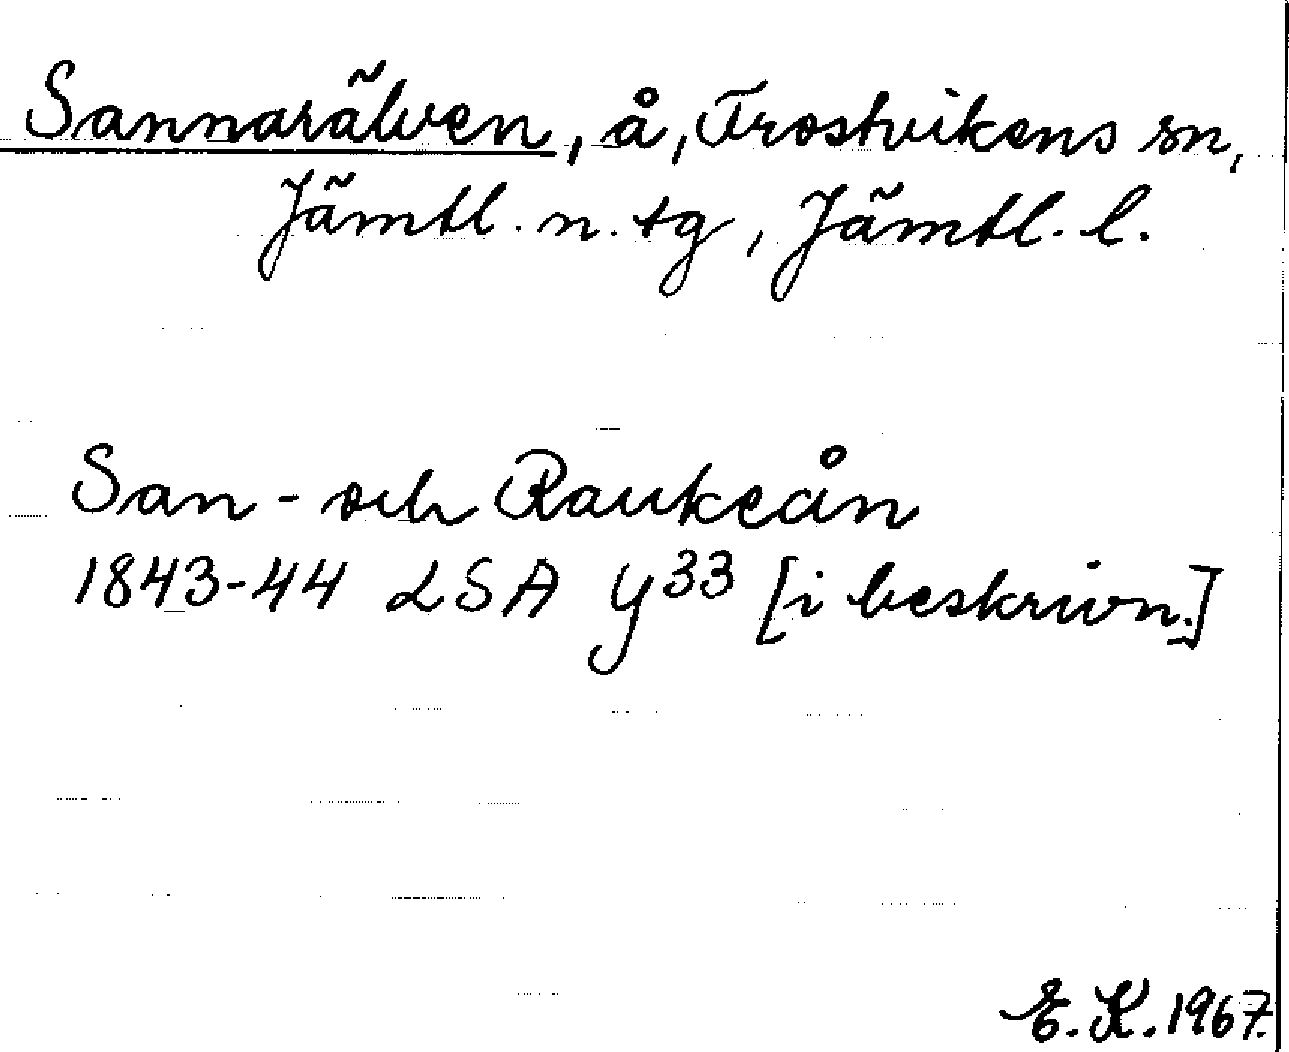 Sannarälven, å, Frostvikens sn,
Jämtl. n. tg, Jämtl. l.
San- och Raukeån
1843-44 LSA Y³³ [i beskrivn.]
E. K. 1967.